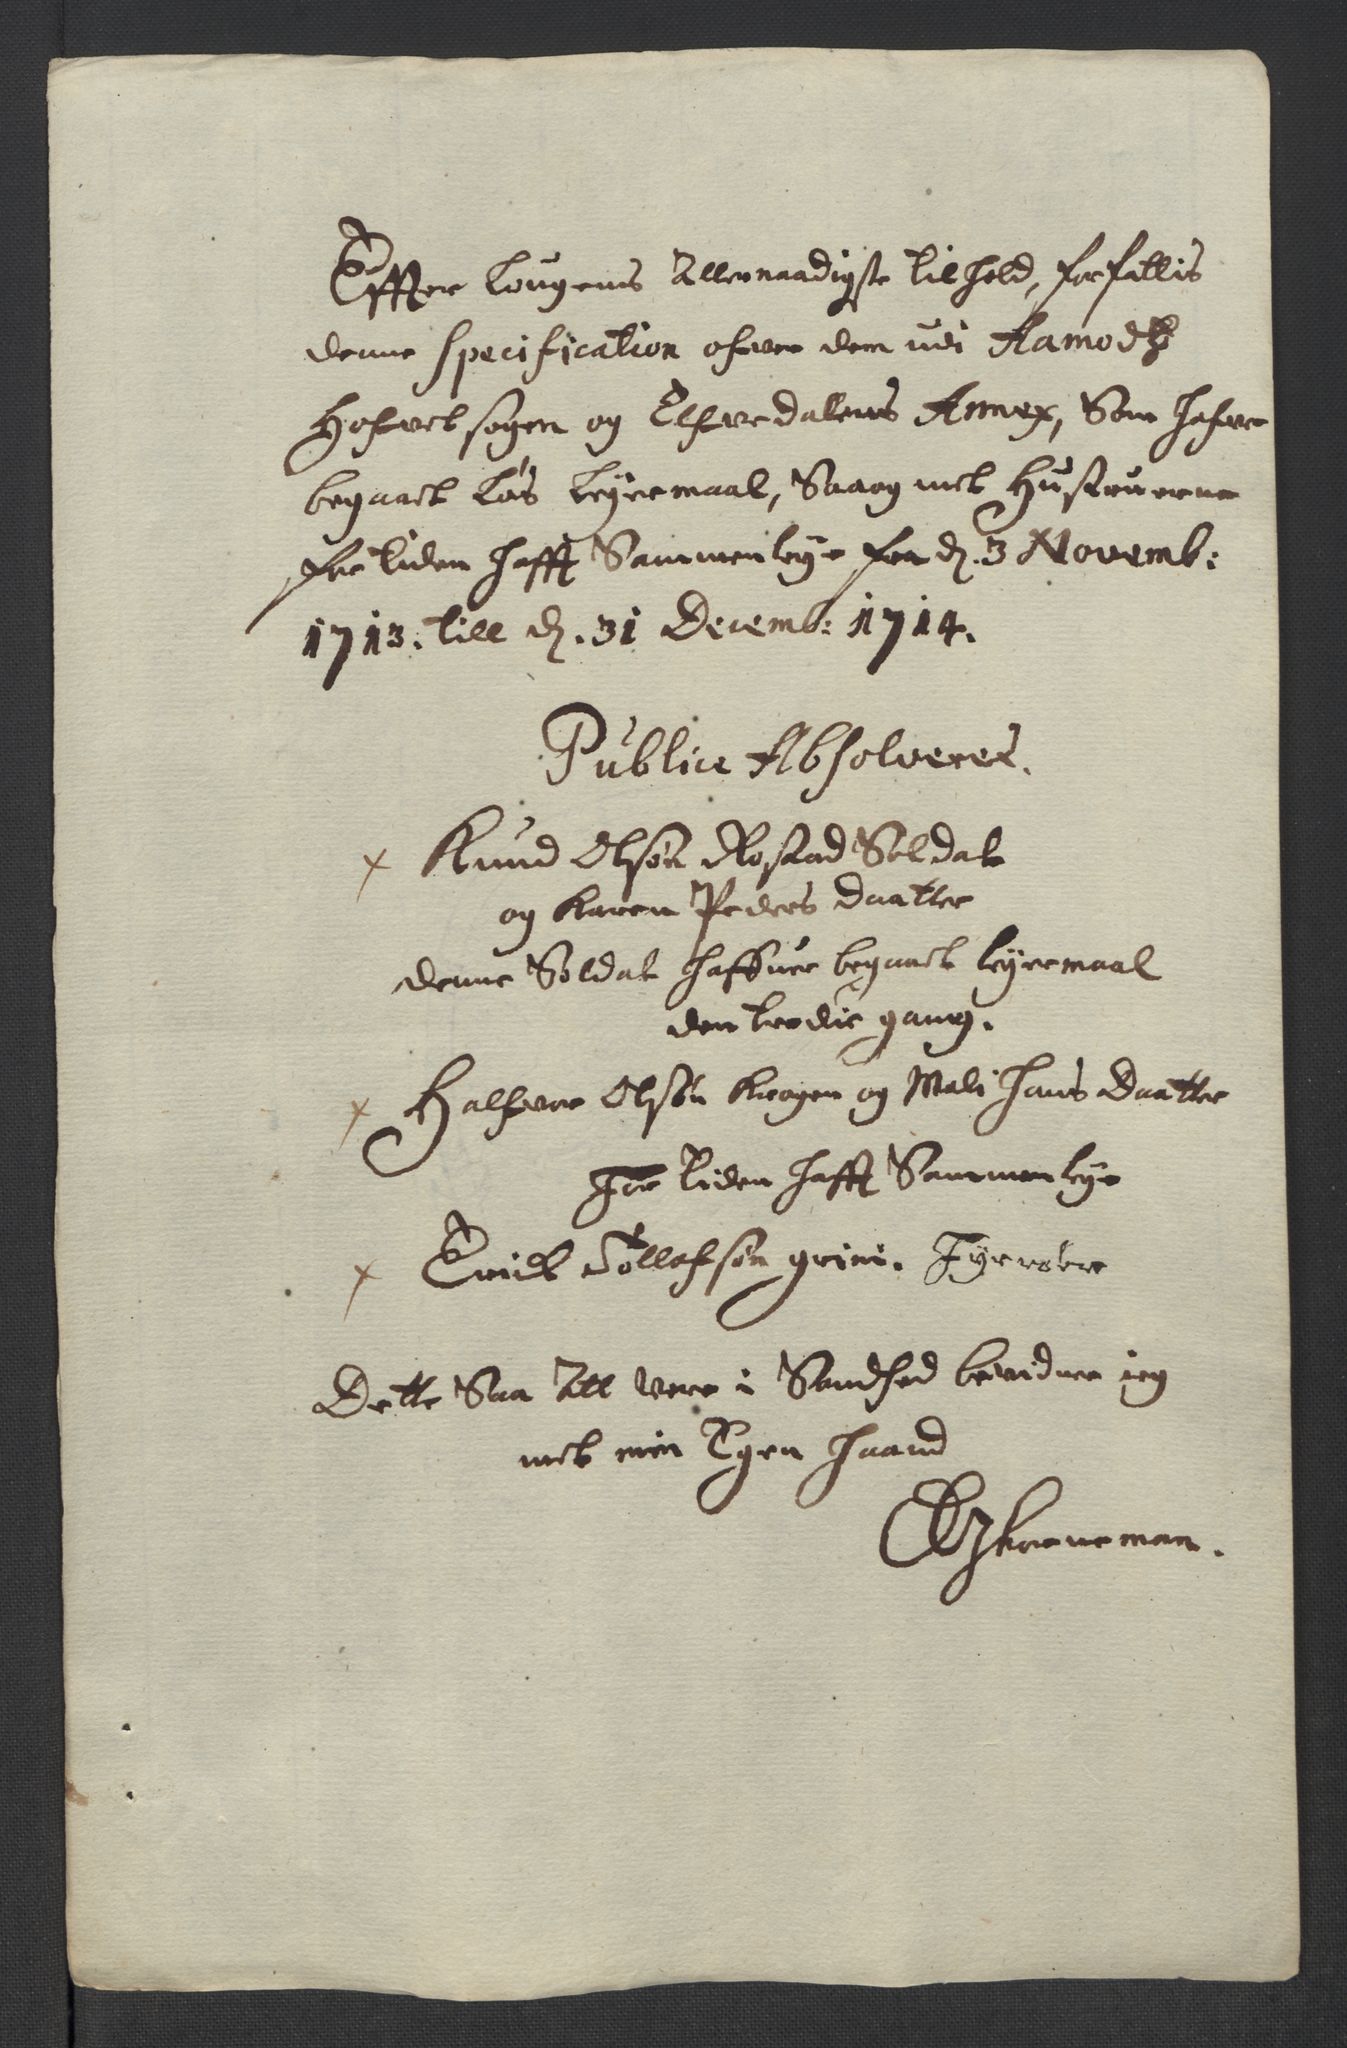 Effter Lougens Allernaadigste tilhold, forfattis
denne specification ofver dem udi Aamodtz
Hofvet sogen og Elfverdalens Annex, Som hafver
begaaet Løs Leyermaal, Saa og met Hustruerne
før tiden hafft Sammenleye fra d. 3 Novemb:
1713. till d. 31 Decemb: 1714.
Publice Absolveres.
× Knud Olsøn Rostad Soldat
og Karen Peders daatter
denne Soldat haffuer begaaet leyermaal
den tredie gang.
× Halfvor Olsøn Krogen og Mali Hans Daatter
For tiden hafft Sammenleye
× Erick Tollefsøn grini.
Dette Saa Att vere i Sandhed bevidner ieg
met min Egen haand